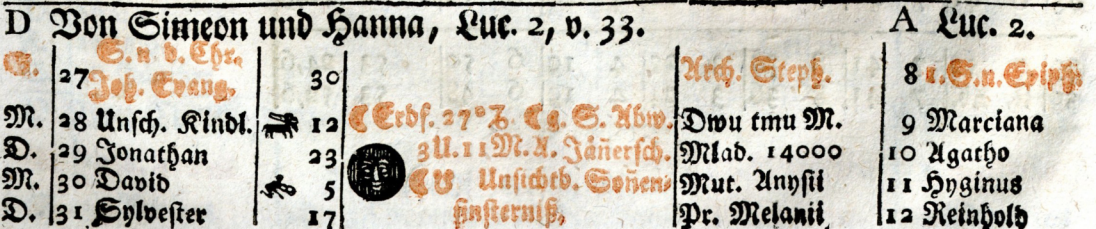 D Von Simeon und Hanna, Luc. 2, v. 33. A Luc. 2.
S. 27 S. n. d. Chr. Joh. Evang. 30 Arch. Steph. 8 1. S. n. Epiph.
M. 28 Unsch. Kindl. 12 ☾ Erdf. 27° ♑. ☾ g. S. Abw. Dwu tmu M. 9 Marciana
D. 29 Jonathan 23 3 U. 11 M. A. Jäñersch. Mlad. 14000 10 Agatho
M. 30 David 5 Unsichtb. Soñen- Mut. Anysii 11 Hyginus
D. 31 Sylvester 17 finsterniß, Pr. Melanii 12 Reinhold